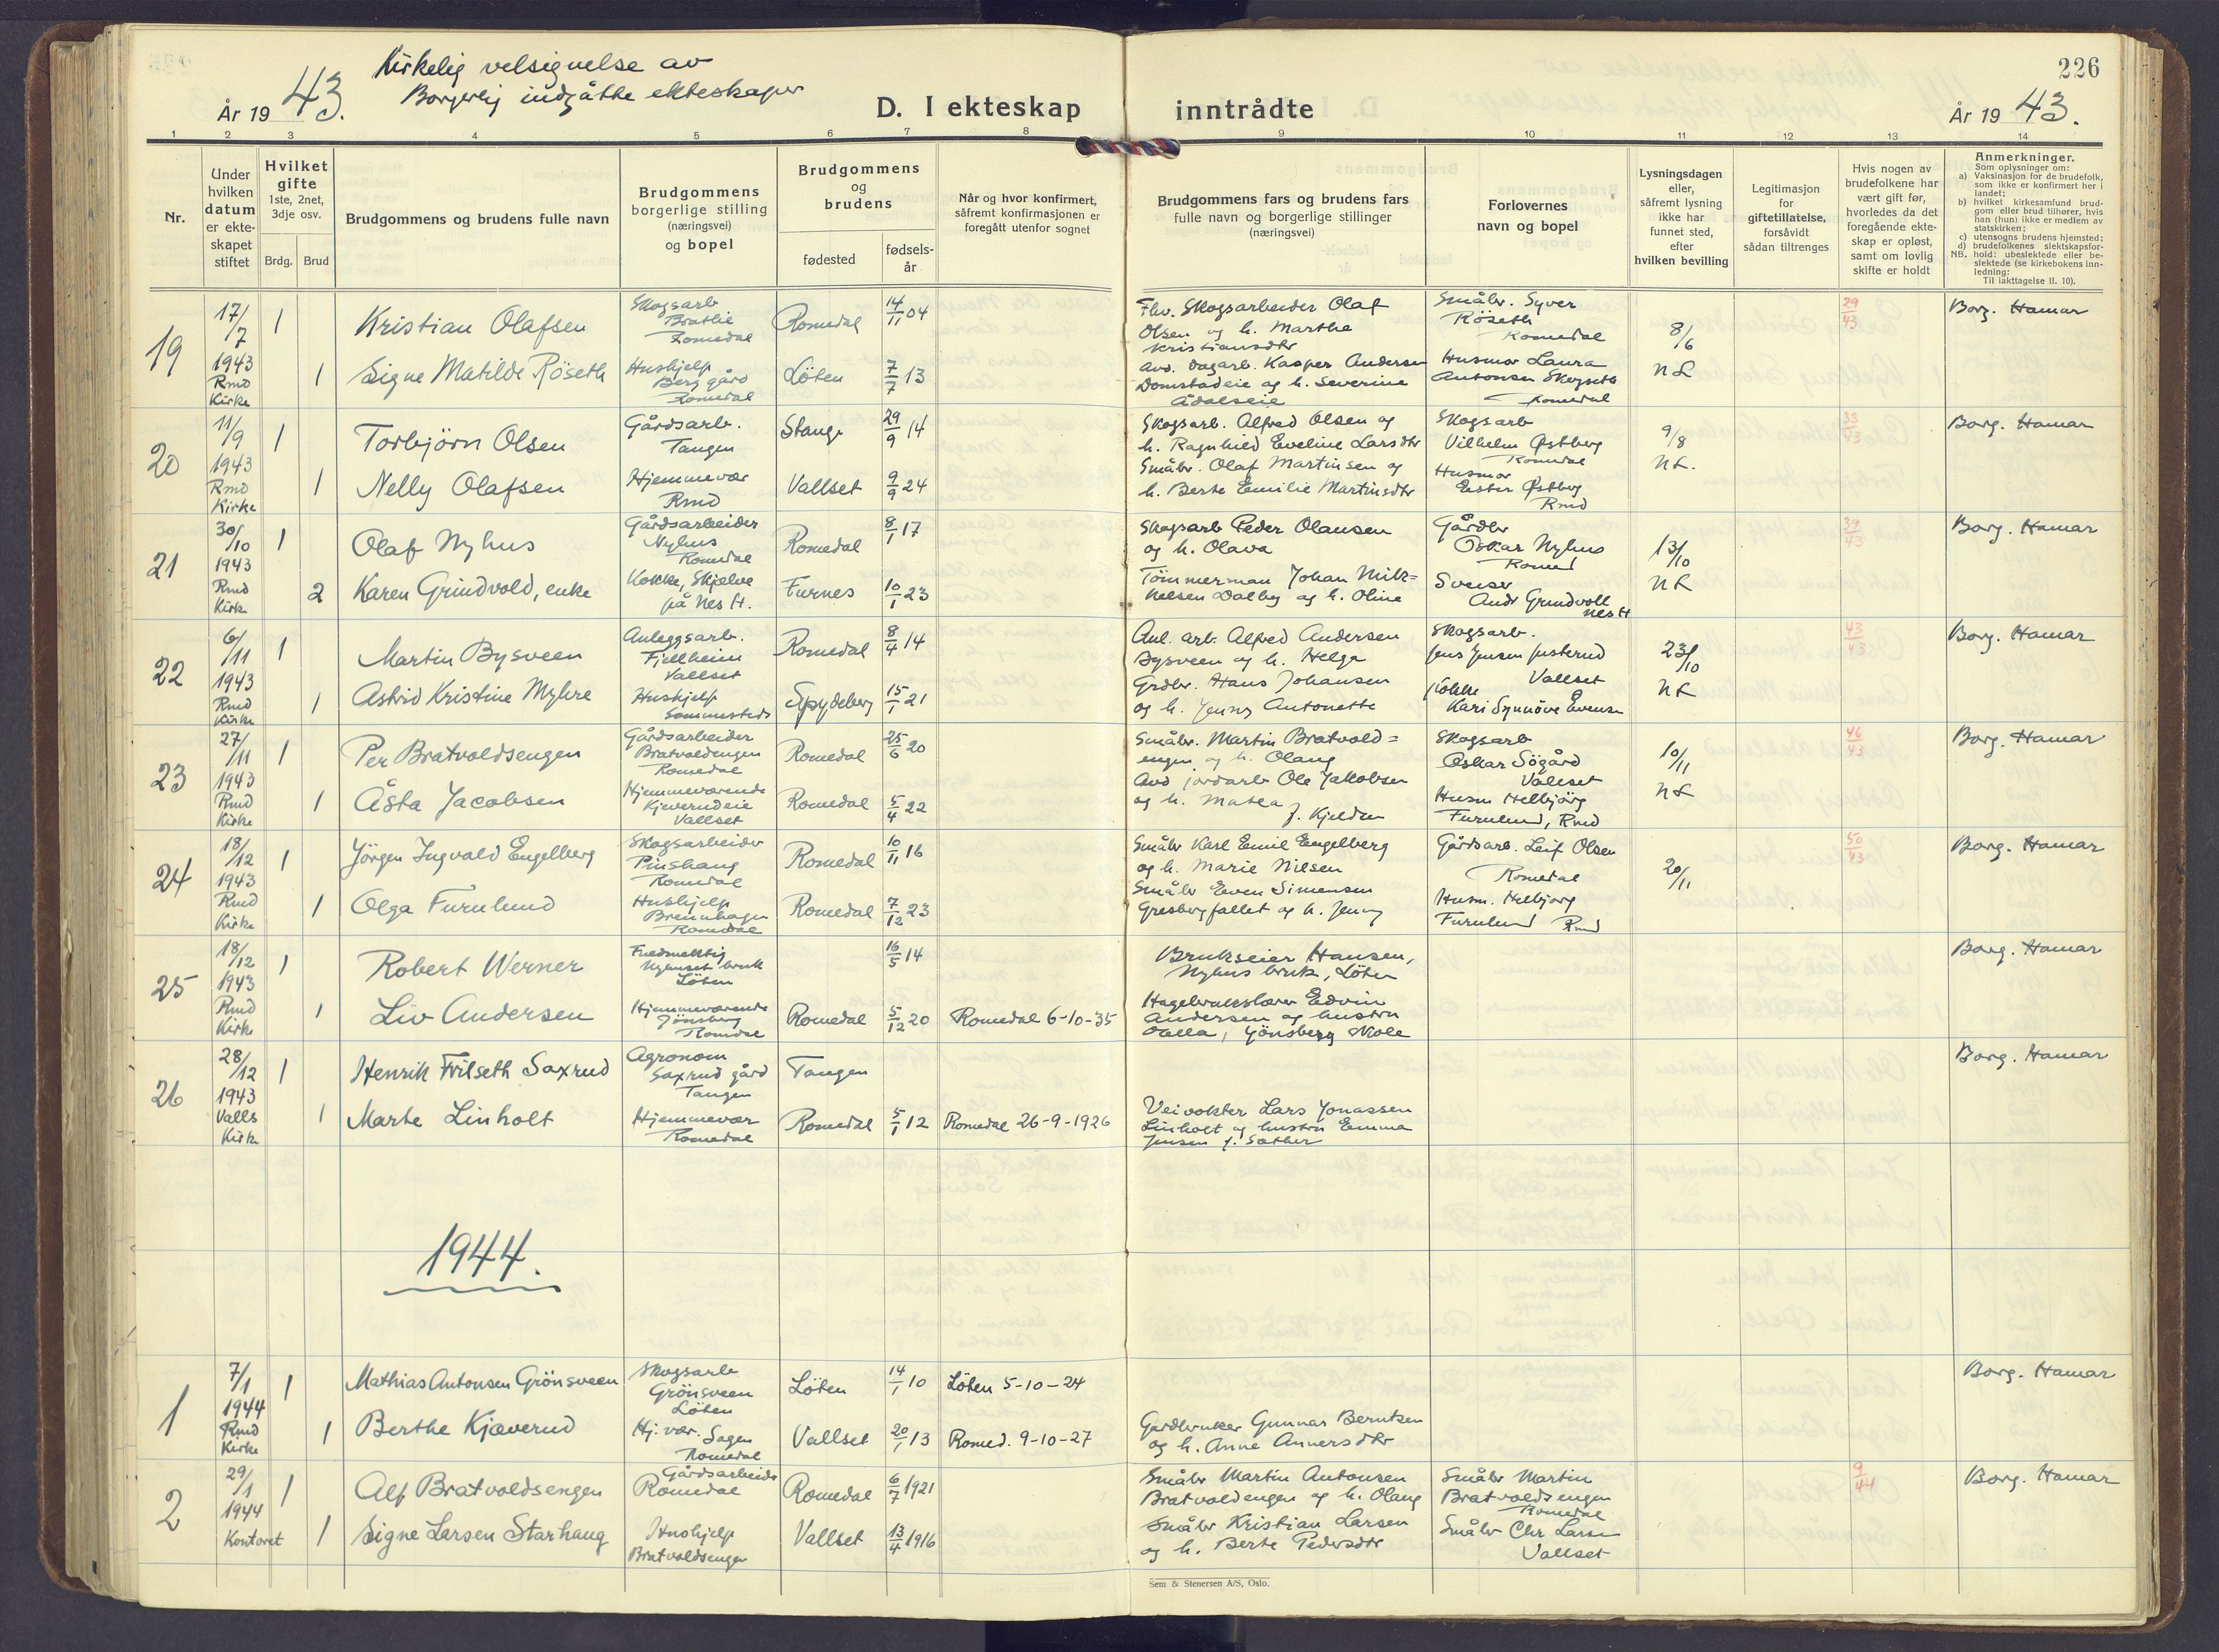 226
År 1943.
Kirkelig velsignelse av
Borgerlig indgåtte ekteskaper
D. I ekteskap inntrådte
År 1943.
1 2 3 4 5 6 7 8 9 10 11 12 13 14
Nr.
Under hvilken datum er ekteskapet stiftet
Hvilket gifte 1ste, 2net, 3dje osv.
Brdg. Brud
Brudgommens og brudens fulle navn
Brudgommens borgerlige stilling (næringsvei) og bopel
Brudgommens og brudens
fødested
fødselsår
Når og hvor konfirmert, såfremt konfirmasjonen er foregått utenfor sognet
Brudgommens fars og brudens fars fulle navn og borgerlige stillinger (næringsvei)
Forlovernes navn og bopel
Lysningsdagen eller, såfremt lysning ikke har funnet sted, efter hvilken bevilling
Legitimasjon for giftetillatelse, forsåvidt sådan tiltrenges
Hvis nogen av brudefolkene har vært gift før, hvorledes da det foregående ekteskap er opløst, samt om lovlig skifte er holdt
Anmerkninger.
Som oplysninger om:
a) Vaksinasjon for de brudefolk, som ikke er konfirmert her i landet;
b) hvilket kirkesamfund brudgom eller brud tilhører, hvis han (hun) ikke er medlem av statskirken;
c) utensogns brudens hjemsted;
d) brudefolkenes slektskapsforhold: ubeslektede eller beslektede (se kirkebokens innledning:
NB.
Til iakttagelse II. 10).
19
17/7 1943 Rmd Kirke
1
Kristian Olafsen
Skogsarb Bratlie Romedal
Romedal
14/11 04
Fhv. Skogsarbeider Olaf Olsen og h. Marthe Kristiansdtr
Småbr. Syver Röseth Romedal
8/6
29/43
Borg. Hamar
1
Signe Matilde Röseth
Hushjelp Berg gård Romedal
Löten
7/7 13
avd. dagarb. Kasper Andersen Domstadeie og h. Severine Ådalseie
Husmor Laura Antonsen Skogseth Romedal
NL
20
11/9 1943 Rmd Kirke
1
Torbjörn Olsen
Gårdsarb. Tangen
Stange
29/9 14
Skogsarb. Alfred Olsen og h. Ragnhild Eveline Larsdtr
Skogsarb Vilhelm Østberg Romedal
9/8
33/43
Borg. Hamar
1
Nelly Olafsen
Hjemmevær Rmd
Vallset
9/9 24
Småbr. Olaf Martinsen og h. Berte Emilie Martinsdtr
Husmor Ester Østberg Rmd
NL.
21
30/10 1943 Rmd Kirke
1
Olaf Nyhus
Gårdsarbeider Nyhus Romedal
Romedal
8/1 17
Skogsarb Peder Olausen og h. Olava
Gårdbr Oskar Nyhus Romed
13/10
39/43
Borg. Hamar
2
Karen Grindvold, enke
Kokke, Skjelve på Nes H.
Furnes
10/1 23
Tömmerman Johan Mikkelsen Dalby og h. Oline
Sveiser Andr Grindvoll Nes H
NL
22
6/11 1943 Rmd Kirke
1
Martin Bysveen
Anleggsarb. Fjellheim Vallset
Romedal
8/4 14
Anl. arb. Alfred Andersen Bysveen og h. Helga
Skogsarb. Jens Jensen Justerud Vallset
23/10
43/43
Borg. Hamar
1
Astrid Kristine Myhre
Hushjelp Sammesteds
Spydeberg
15/1 21
Grdbr. Hans Johansen og h. Jenny Antonette
Kokke Kari Synnöve Evensen
NL
23
27/11 1943 Rmd Kirke
1
Per Bratvoldsengen
Gårdsarbeider Bratvoldengen Romedal
Romedal
25/6 20
Småbr. Martin Bratvoldengen og h. Olaug
Skogsarb Oskar Sögård Vallset
10/11
46/43
Borg. Hamar
1
Åsta Jacobsen
Hjemmeværende Kjeverudeie Vallset
Romedal
5/4 22
Avd jordarb Ole Jakobsen og h. Matea f. Kjelden
Husm Helbjörg Furulund, Rmd
NL
24
18/12 1943 Rmd Kirke
1
Jörgen Ingvald Engelberg
Skogsarbeider Pinshaug Romedal
Romedal
10/11 16
Småbr Karl Emil Engelberg og h. Marie Nilsen
Gårdsarb. Leif Olsen Romedal
20/11
50/43
Borg. Hamar
1
Olga Furulund
Hushjelp Brennhagen Romedal
Romedal
7/12 23
Småbr Even Simensen Gresbergfallet og h. Jenny
Husm. Helbjørg Furulund Rmd
25
18/12 1943 Rmd Kirke
1
Robert Werner
Fuldmektig Nyhuset bruk Löten
16/5 14
Brukseier Hansen, Nyhus bruk, Löten
Borg. Hamar
1
Liv Andersen
Hjemmeværende Jönsberg Romedal
Romedal
5/12 20
Romedal 6-10-35
Hagebrukslærer Edvin Andersen og hustru Oella, Jönsberg skole
26
28/12 1943 Valls Kirke
1
Henrik Frilseth Saxrud
Agronom Saxrud gård Tangen
Tangen
Borg. Hamar
1
Marte Linholt
Hjemmevær Romedal
Romedal
5/1 12
Romedal 26-9-1926
Veivokter Lars Jonassen Linholt og hustru Emma Jensen f. Sæther
1944.
1
7/1 1944 Rmd Kirke
1
Mathias Antonsen Grönsveen
Skogsarb Grönsveen Löten
Löten
14/1 10
Löten 5-10-24
Borg. Hamar
1
Berthe Kjæverud
Hj. vær. Sagen Romedal
Vallset
20/1 13
Romed. 9-10-27
Gardbruker Gunnar Berntsen og h. Anne Annersdtr
2
29/1 1944 Kontoret
1
Alf Bratvoldsengen
Gårdsarbeider Romedal
Romedal
6/7 1921
Småbr Martin Antonsen Bratvoldengen og h. Olaug
Småbr Martin Bratvoldsengen Romedal
9/44
Borg. Hamar
1
Signe Larsen Starhaug
Hushjelp Bratvoldsengen
Vallset
13/4 1916
Småbr Kristian Larsen og h. Berte Pedersdtr
Småbr Chr Larsen Vallset
Sem & Stenersen A/S, Oslo.